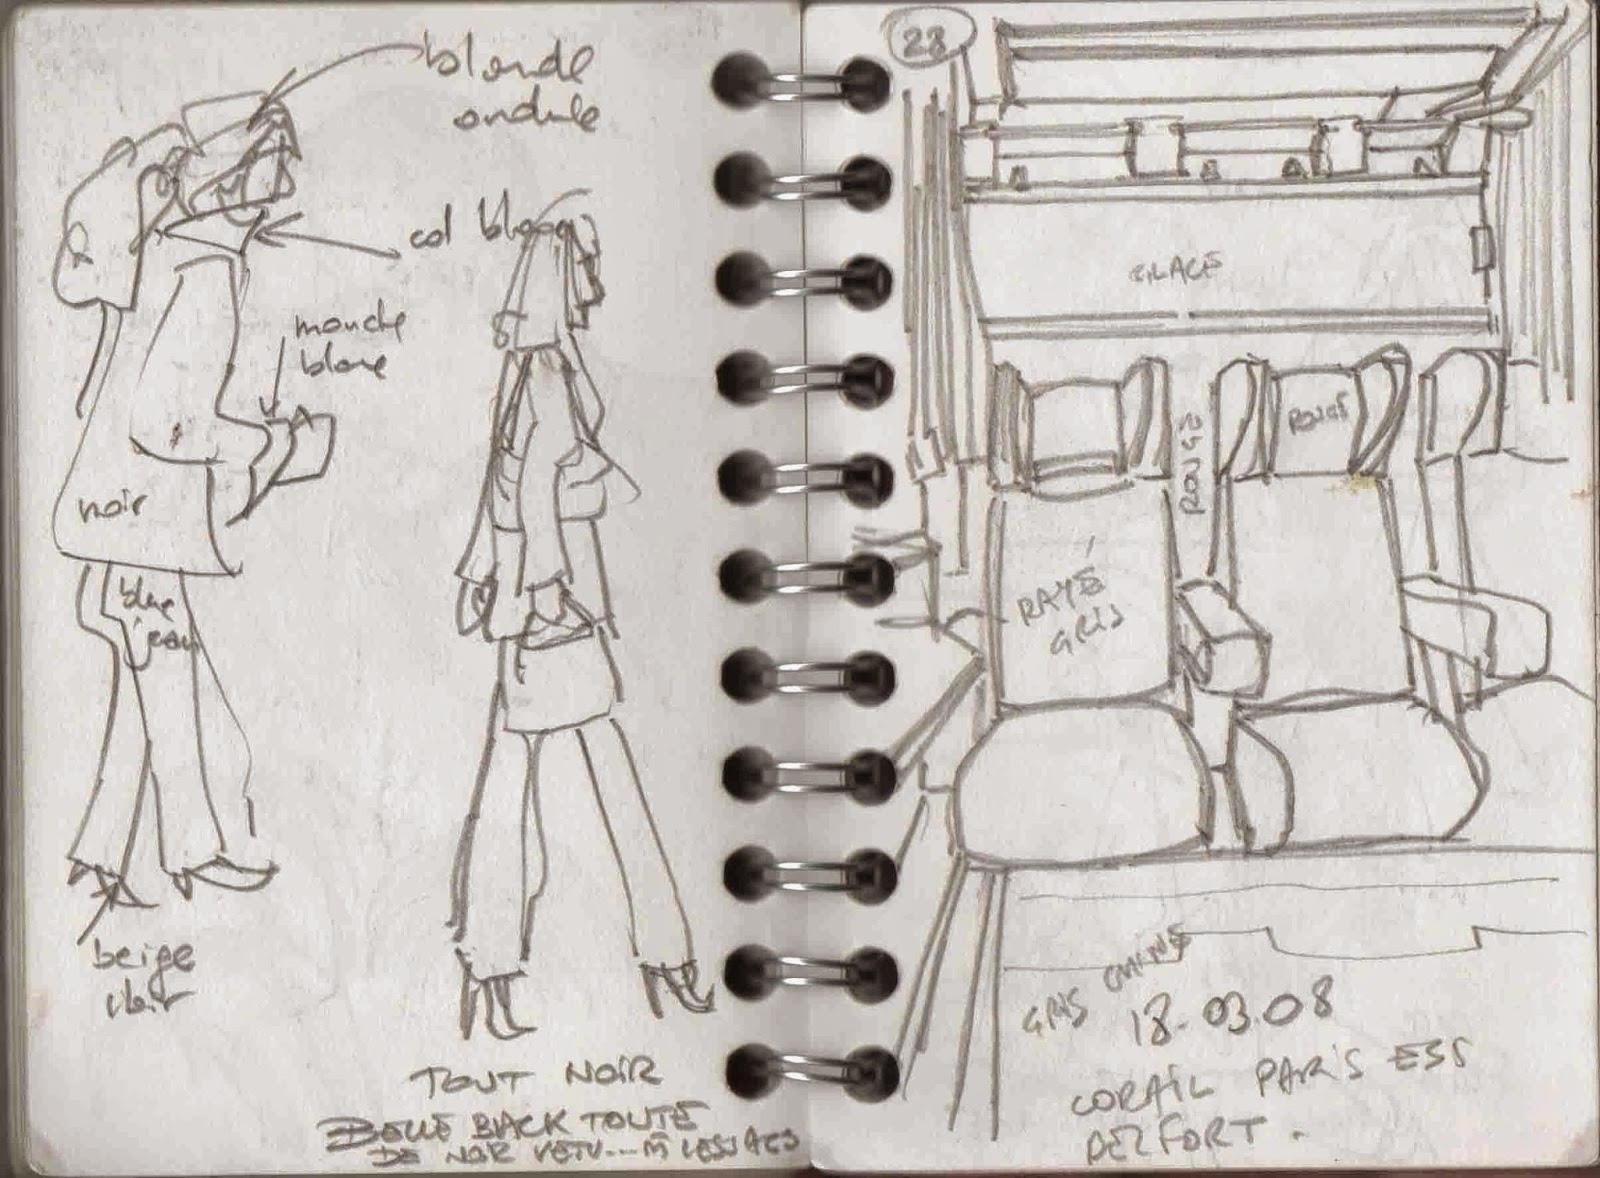 blonde
ondule
col blanc
manche
blanc
noir
blue
jean
beige
clair
TOUT NOIR
BELLE BLACK TOUTE
DE NOIR VETU... M LES SACS
28
GLACE
ROUGE
ROUGE
RAYÉ
GRIS
GRIS CHINÉ
18.03.08
CORAIL PARIS ESS
BELFORT.